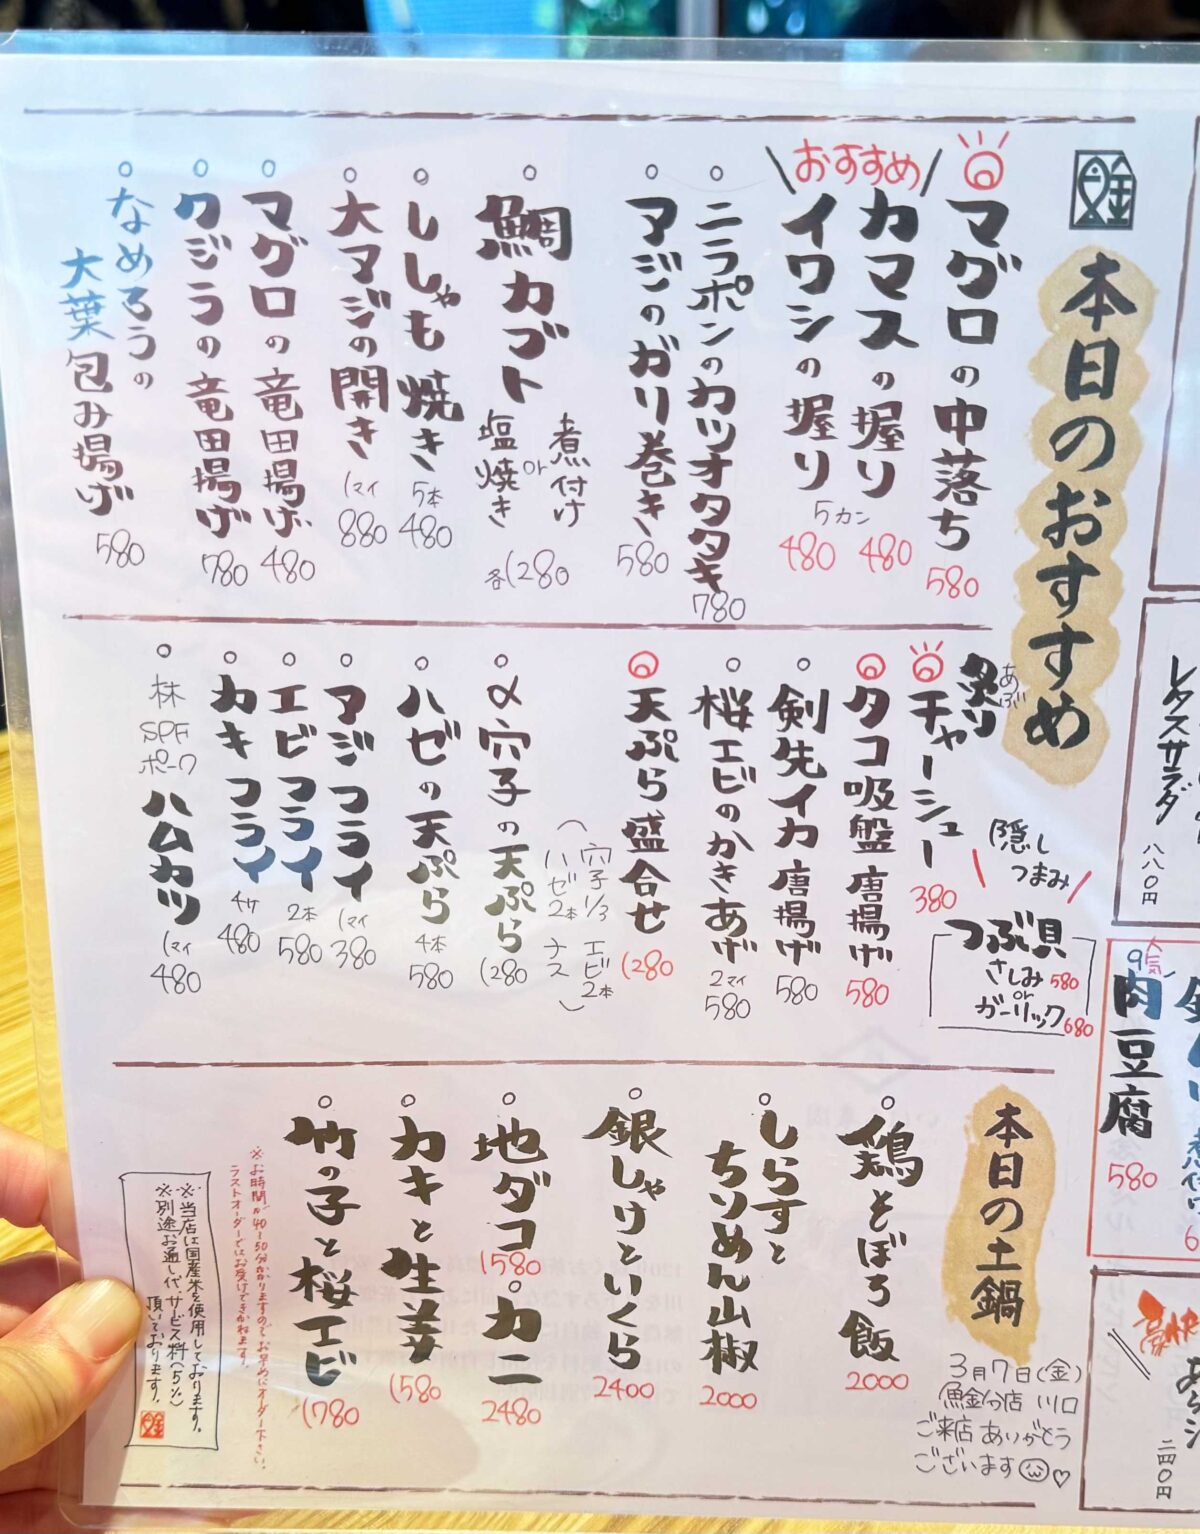 本日のおすすめ
マグロの中落ち 580
おすすめ
カマスの握り 480
イワシの握り 5カン 480
ニラポンのカツオタタキ 780
アジのガリ巻き 580
鯛カブト 煮付け or 塩焼き 各1280
ししゃも焼き 5本 480
大アジの開き 1マイ 880
マグロの竜田揚げ 480
クジラの竜田揚げ 780
なめろうの
大葉包み揚げ 580
炙り
あぶ
チャーシュー 380
隠し
つまみ
つぶ貝
さしみ 580
or
ガーリック 680
タコ吸盤唐揚げ 580
剣先イカ唐揚げ 580
桜エビのかきあげ 2マイ 580
天ぷら盛合せ 1280
(穴子1/3 エビ2本
ハゼ2本 ナス)
〆穴子の天ぷら 1280
ハゼの天ぷら 4本 580
アジフライ 1マイ 380
エビフライ 2本 580
カキフライ 4ケ 480
林
SPF
ポーク
ハムカツ 1マイ 480
本日の土鍋
鶏そぼろ飯 2000
しらすと
ちりめん山椒 2000
銀しゃけといくら 2400
地ダコ 1580
カニ 2480
カキと生姜 1580
竹の子と桜エビ 1780
※お時間が40~50分かかりますのでお早めにオーダー下さい。
ラストオーダーではお受けできかねます。
※当店は国産米を使用しております。
※別途お通し代、サービス料(5%)
頂いております。
3月7日(金)
魚金分店 川口
ご来店ありがとう
ございます
レタスサラダ
八八〇円
人気
肉豆腐
580
二四〇円